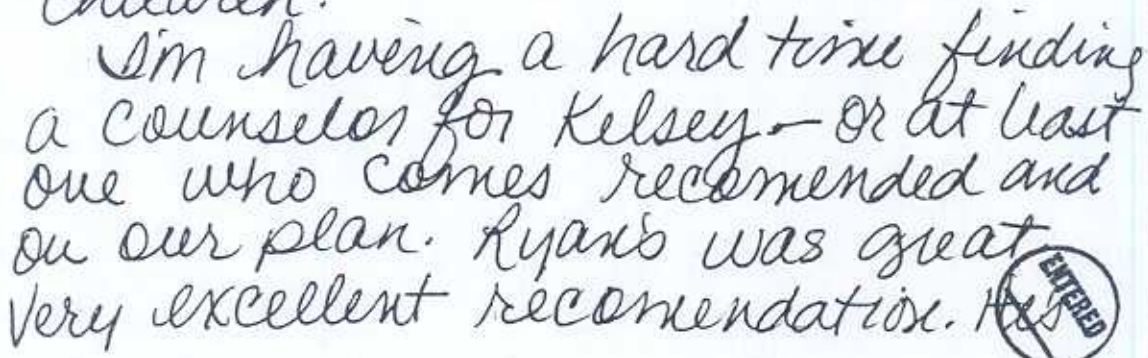 children.
I'm having a hard time finding
a counselor for Kelsey - or at least
one who comes recomended and
on our plan. Ryan's was great
very excellent recomendation. He's
ENTERED